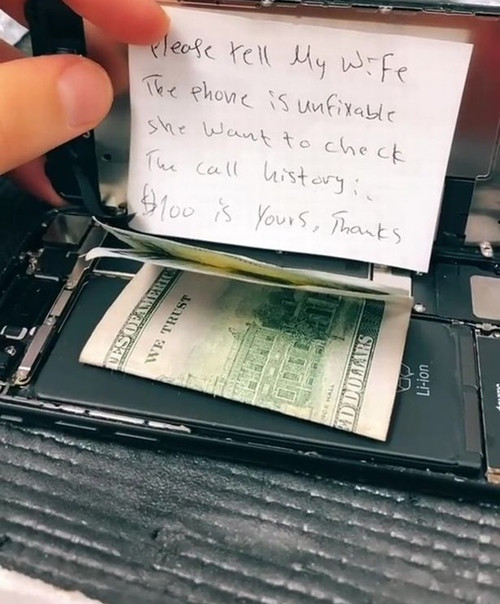 Please tell My Wife
The phone is unfixable
she want to check
The call history;.
$100 is Yours, Thanks
ES OF AMERICA
WE TRUST
D DOLLARS
Li-ion